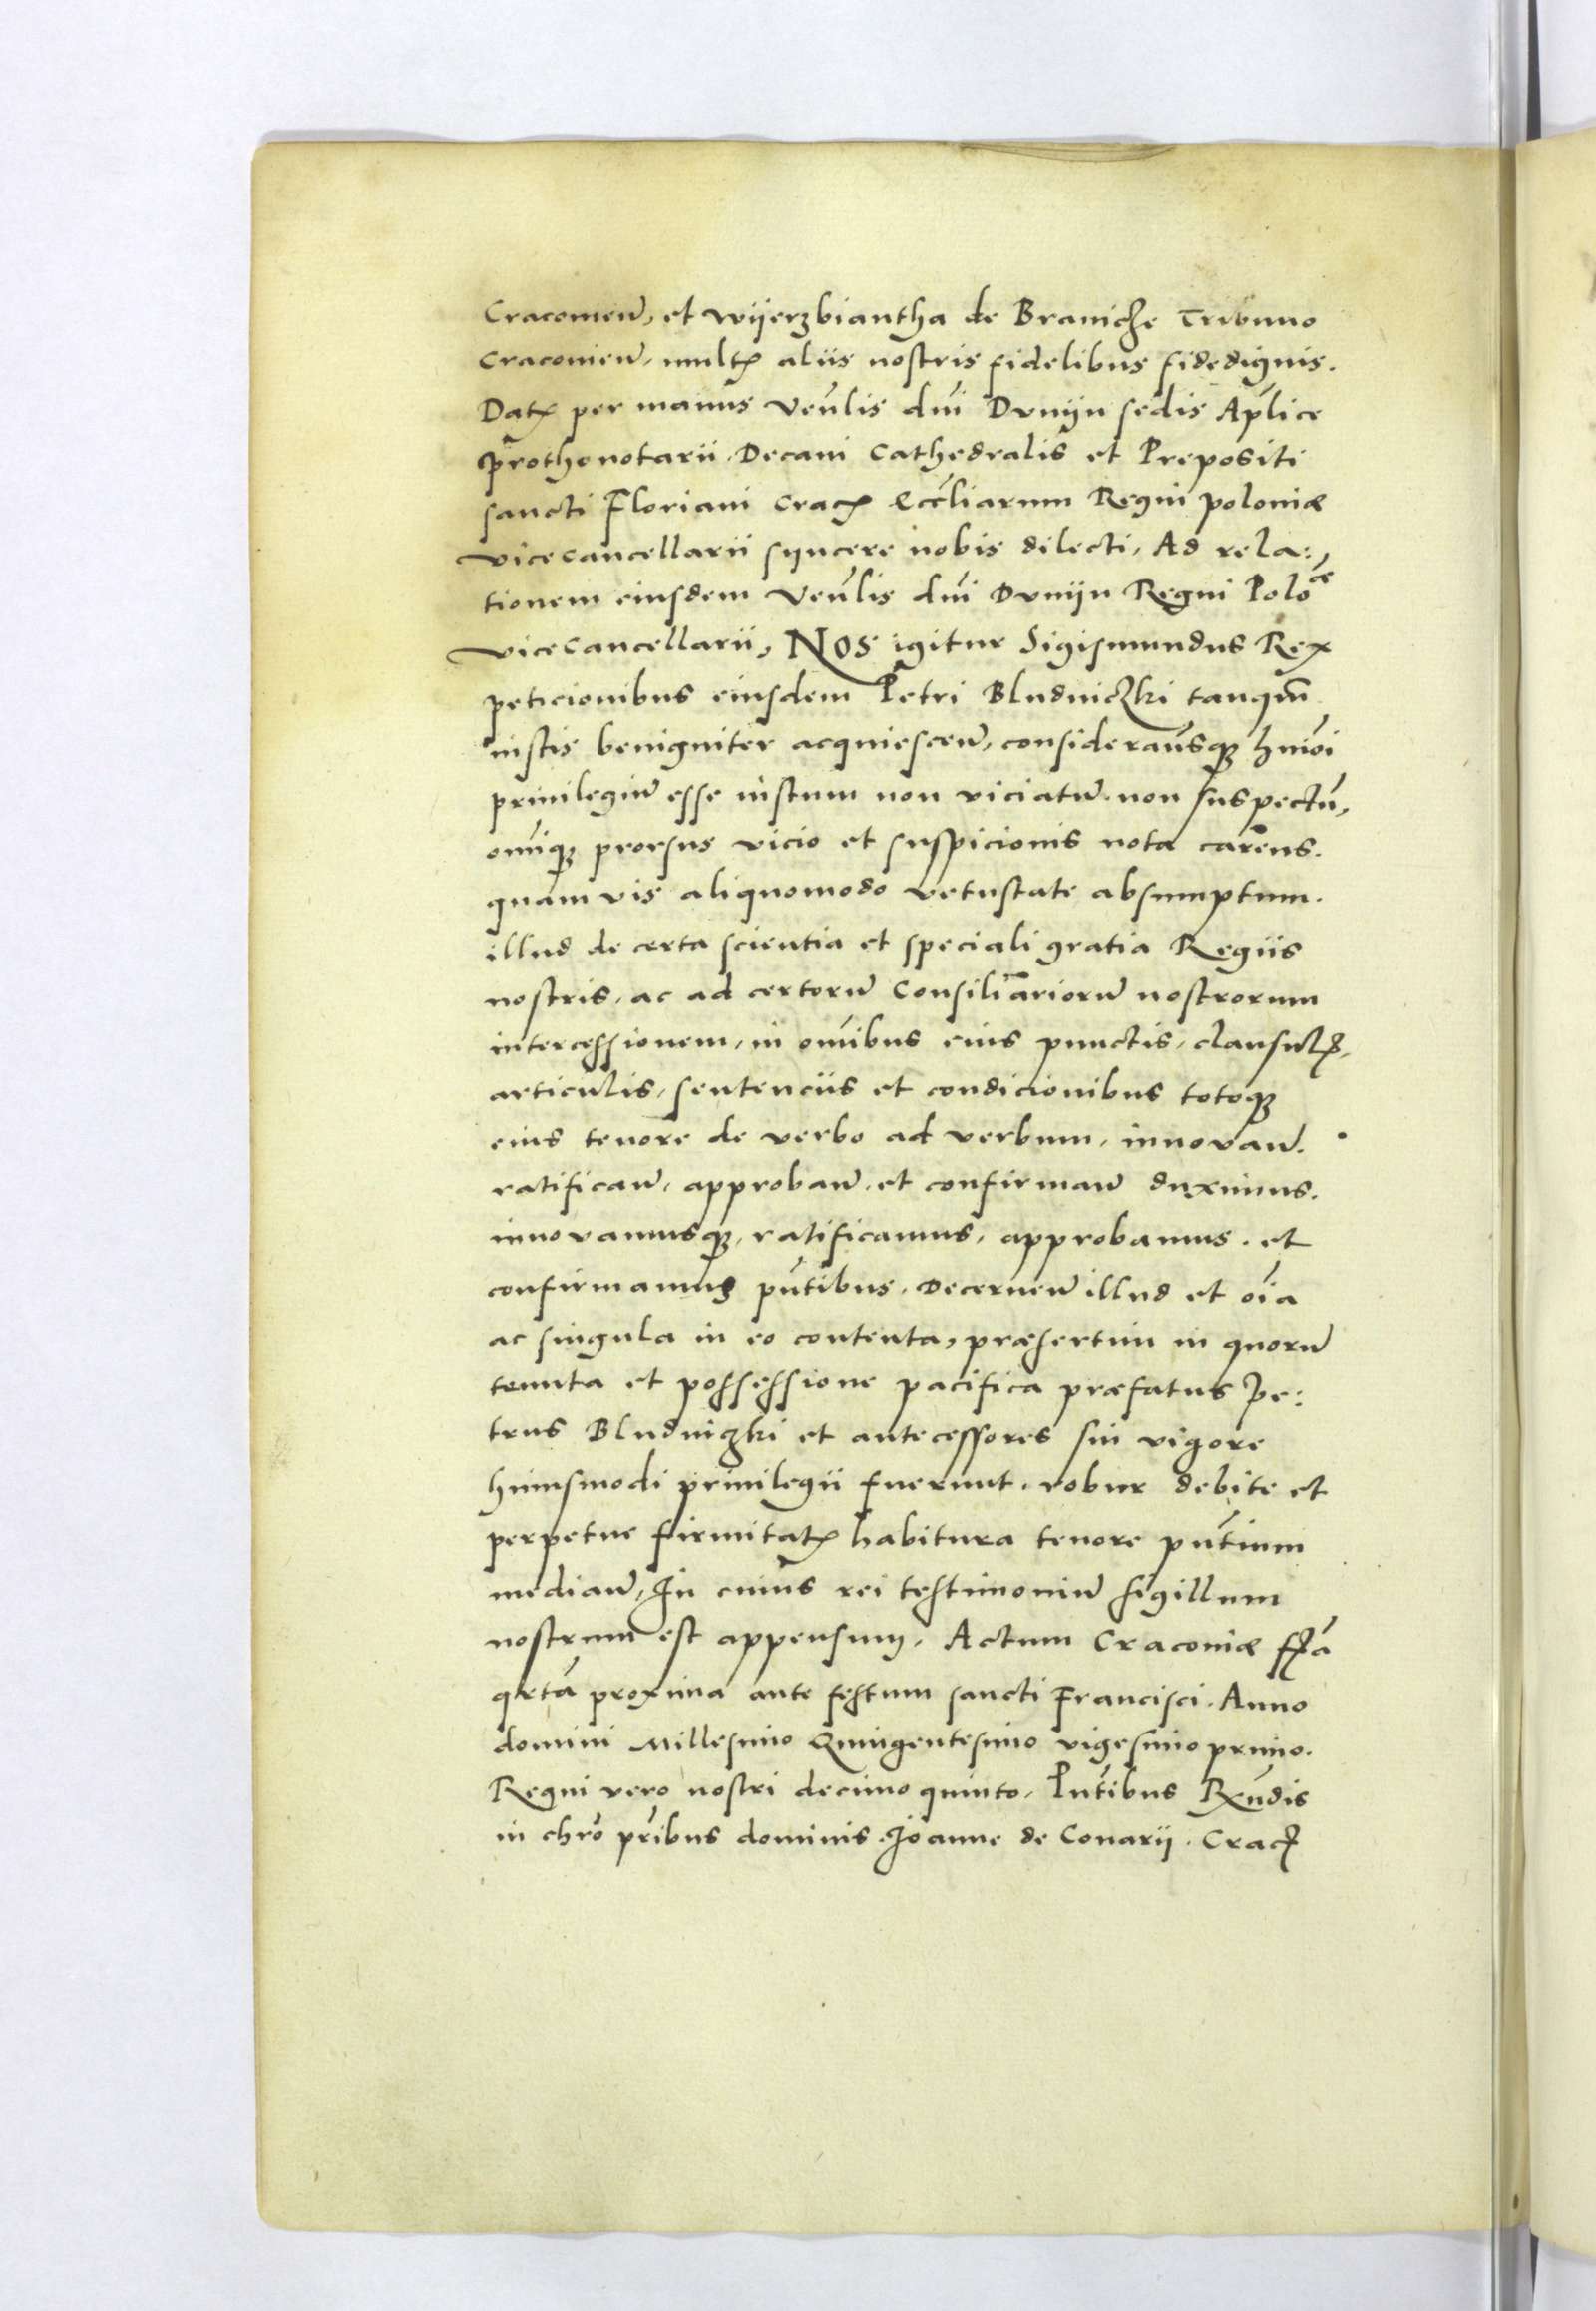 Cracovien̄, et Wyerzbiantha de Braniche Tribuno
Cracovien̄, multꝭ aliis nostris fidelibus fidedignis.
Datꝭ per manus Ven̄lis dn̄i Dunyn sedis Ap̄lice
prothonotarii, Decani Cathedralis et Prepositi
sancti Floriani Cracꝭ Eccl̄iarum Regni poloniæ
vicecancellarii syncere nobis dilecti, Ad rela:
tionem eiusdem Ven̄lis dn̄i Dunyn Regni Poloæ
vicecancellarii, NOS igitur Sigismundus Rex
peticionibus eiusdem Petri Bludniczki tanqm̄
iustis benigniter acquiescen̄, consideran̄sqꝫ hmōi
privilegiū esse iustum non viciatū, non suspectū,
omn̄iqꝫ prorsus vicio et suspicionis nota carens.
quamvis aliquomodo vetustate absumptum.
illud de certa scientia et speciali gratia Regiis
nostris, ac ad certorū Consiliariorū nostrorum
intercessionem, in omn̄ibus eius punctis, clausulꝭ,
articulis, sentenciis et condicionibus totoqꝫ
eius tenore de verbo ad verbum, innovan̄.
ratifican̄, approban̄, et confirman̄ duximus.
innovamusqꝫ, ratificamus, approbamus, et
confirmamus pn̄tibus, Decernen̄ illud et oīa
ac singula in eo contenta, præsertim in quorū
tenuta et possessione pacifica præfatus Pe:
trus Bludniczki et antecessores sui vigore
huiusmodi privilegii fuerunt, robur debite et
perpetue firmitatꝭ habitura tenore pn̄tium
median̄, In cuius rei testimoniū sigillum
nostrum est appensum, Actum Cracoviæ fꝭā
qrtā proxima ante festum sancti Francisci. Anno
domini Millesimo Quingentesimo vigesimo primo.
Regni vero nostri decimo quinto, Pn̄tibus Rxn̄dis
in chr̄o pr̄ibus dominis Joanne de Conarii, Cracꝭ